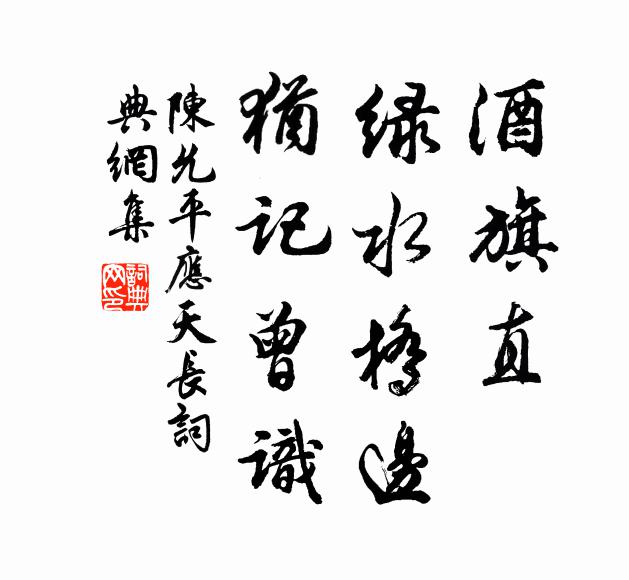 酒旗直
绿水橋邊
猶記曾識
陳允平應天長詞
典網集
詞典网印